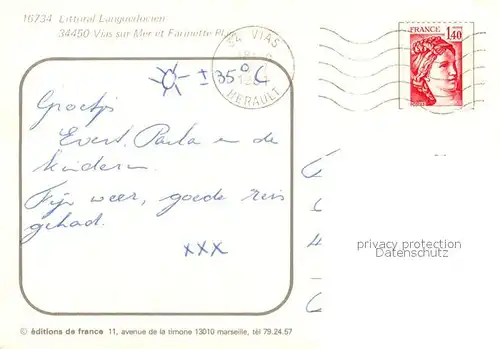 16734 Littoral Languedocien
34450 Vias sur Mer et Farinette Pl
34 VIAS
HERAULT
FRANCE
1,40
POSTES
± 35° C
Groetjes
Evert, Paula en de
kinderen.
Fijn weer, goede reis
gehad.
xxx
privacy protection
Datenschutz
© éditions de france 11, avenue de la timone 13010 marseille, tél 79.24.57